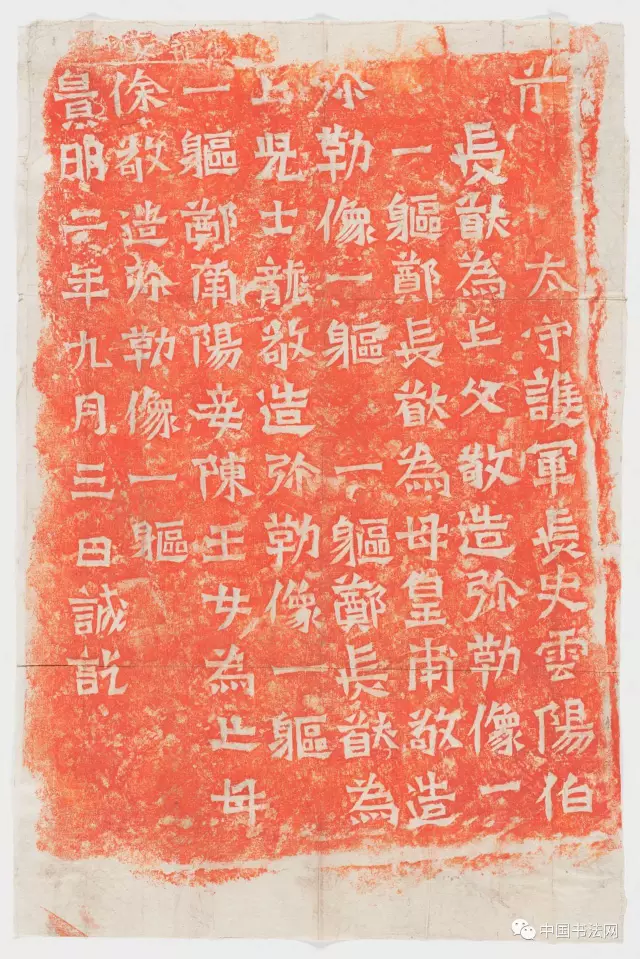 前太守護軍長史雲陽伯
長猷為亡父敬造弥勒像一
一軀鄭長猷為母皇甫敬造
弥勒像一軀一軀鄭長猷為
亡兒士龍敬造弥勒像一軀
一軀鄭南陽妾陳王女為亡母
徐敬造弥勒像一軀
景明二年九月三日誠訖
中国书法网